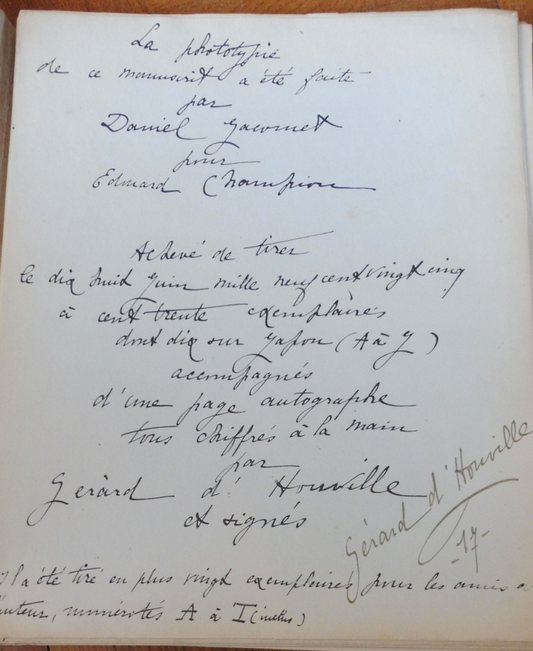 La phototypie
de ce manuscrit a été faite
par
Daniel Jacomet
pour
Edouard Champion
Achevé de tirer
le dix huit Juin mille neuf cent vingt cinq
à cent trente exemplaires
dont dix sur Japon (A à J)
accompagnés
d'une page autographe
tous chiffrés à la main
par
Gérard d'Houville
et signés
Gérard d'Houville
-17-
Il a été tiré en plus vingt exemplaires pour les amis de
auteur, numérotés A à T (inclus)